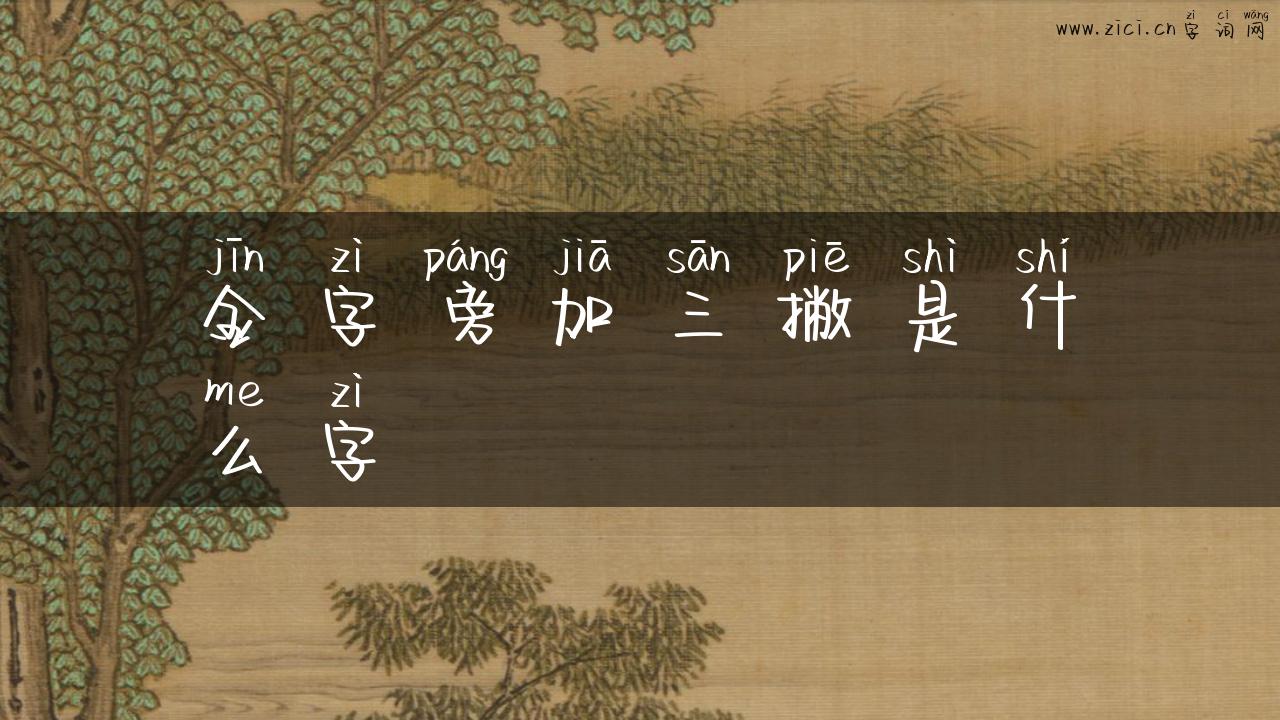 zì cí wǎng
www.zici.cn 字词网
jīn zì páng jiā sān piē shì shí
金字旁加三撇是什
me zì
么字